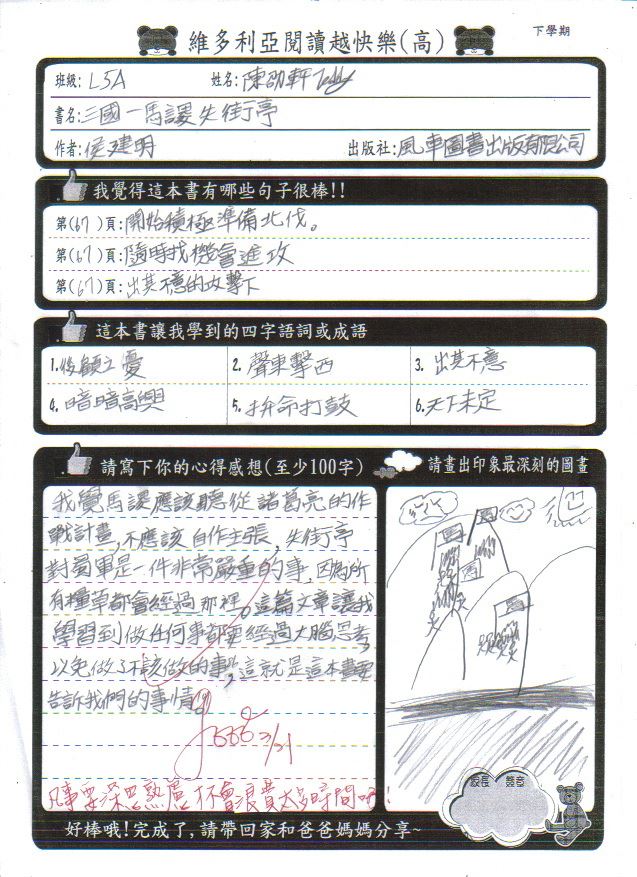 下學期
維多利亞閱讀越快樂(高)
班級: L5A 姓名: 陳劭軒 Teddy
書名: 三國－馬謖失街亭
作者: 侯建明 出版社: 風車圖書出版有限公司
我覺得這本書有哪些句子很棒!!
第(67)頁: 開始積極準備北伐。
第(67)頁: 隨時找機會進攻
第(67)頁: 出其不意的攻擊下
這本書讓我學到的四字語詞或成語
1.後顧之憂 2.聲東擊西 3.出其不意
4.暗暗高興 5.拚命打鼓 6.天下未定
請寫下你的心得感想(至少100字)
請畫出印象最深刻的圖畫
我覺馬謖應該聽從諸葛亮的作
戰計畫,不應該自作主張,失街亭
對蜀軍是一件非常嚴重的事,因為所
有糧草都會經過那裡。這篇文章讓我
學習到做任何事都要經過大腦思考,
以免做了不該做的事,這就是這本書要
告訴我們的事情。
3/21
凡事要深思熟慮,才不會浪費太多時間
家長 簽章
好棒哦!完成了,請帶回家和爸爸媽媽分享~